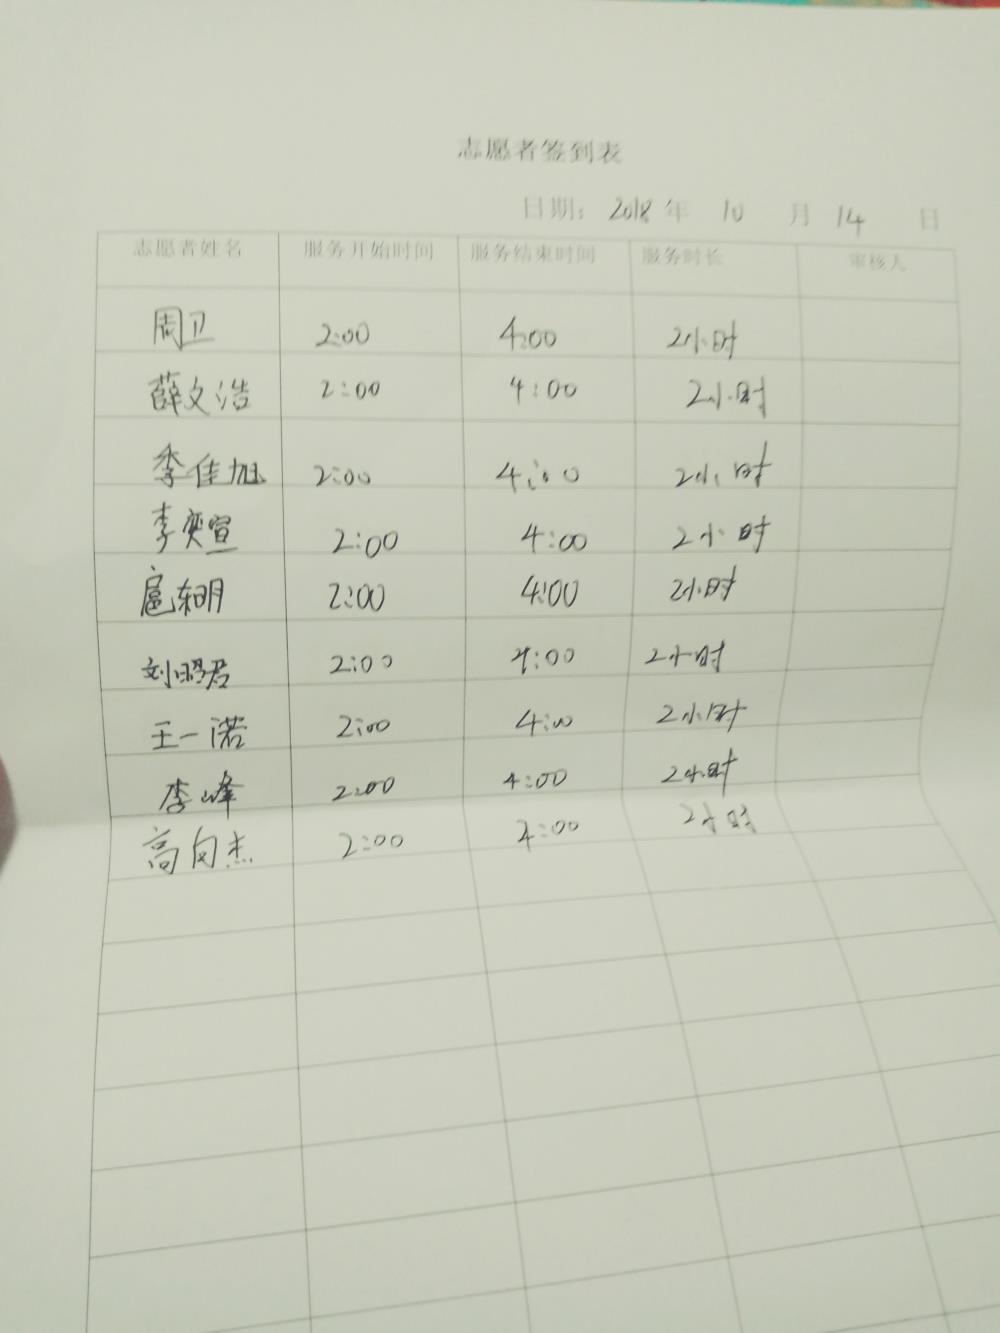 志愿者签到表
日期：2018年 10 月 14 日
志愿者姓名 服务开始时间 服务结束时间 服务时长 审核人
周卫 2:00 4:00 2小时
薛文浩 2:00 4:00 2小时
季佳旭 2:00 4:00 2小时
李奕宣 2:00 4:00 2小时
扈东明 2:00 4:00 2小时
刘昭君 2:00 4:00 2小时
王一诺 2:00 4:00 2小时
李峰 2:00 4:00 2小时
高向杰 2:00 4:00 2小时